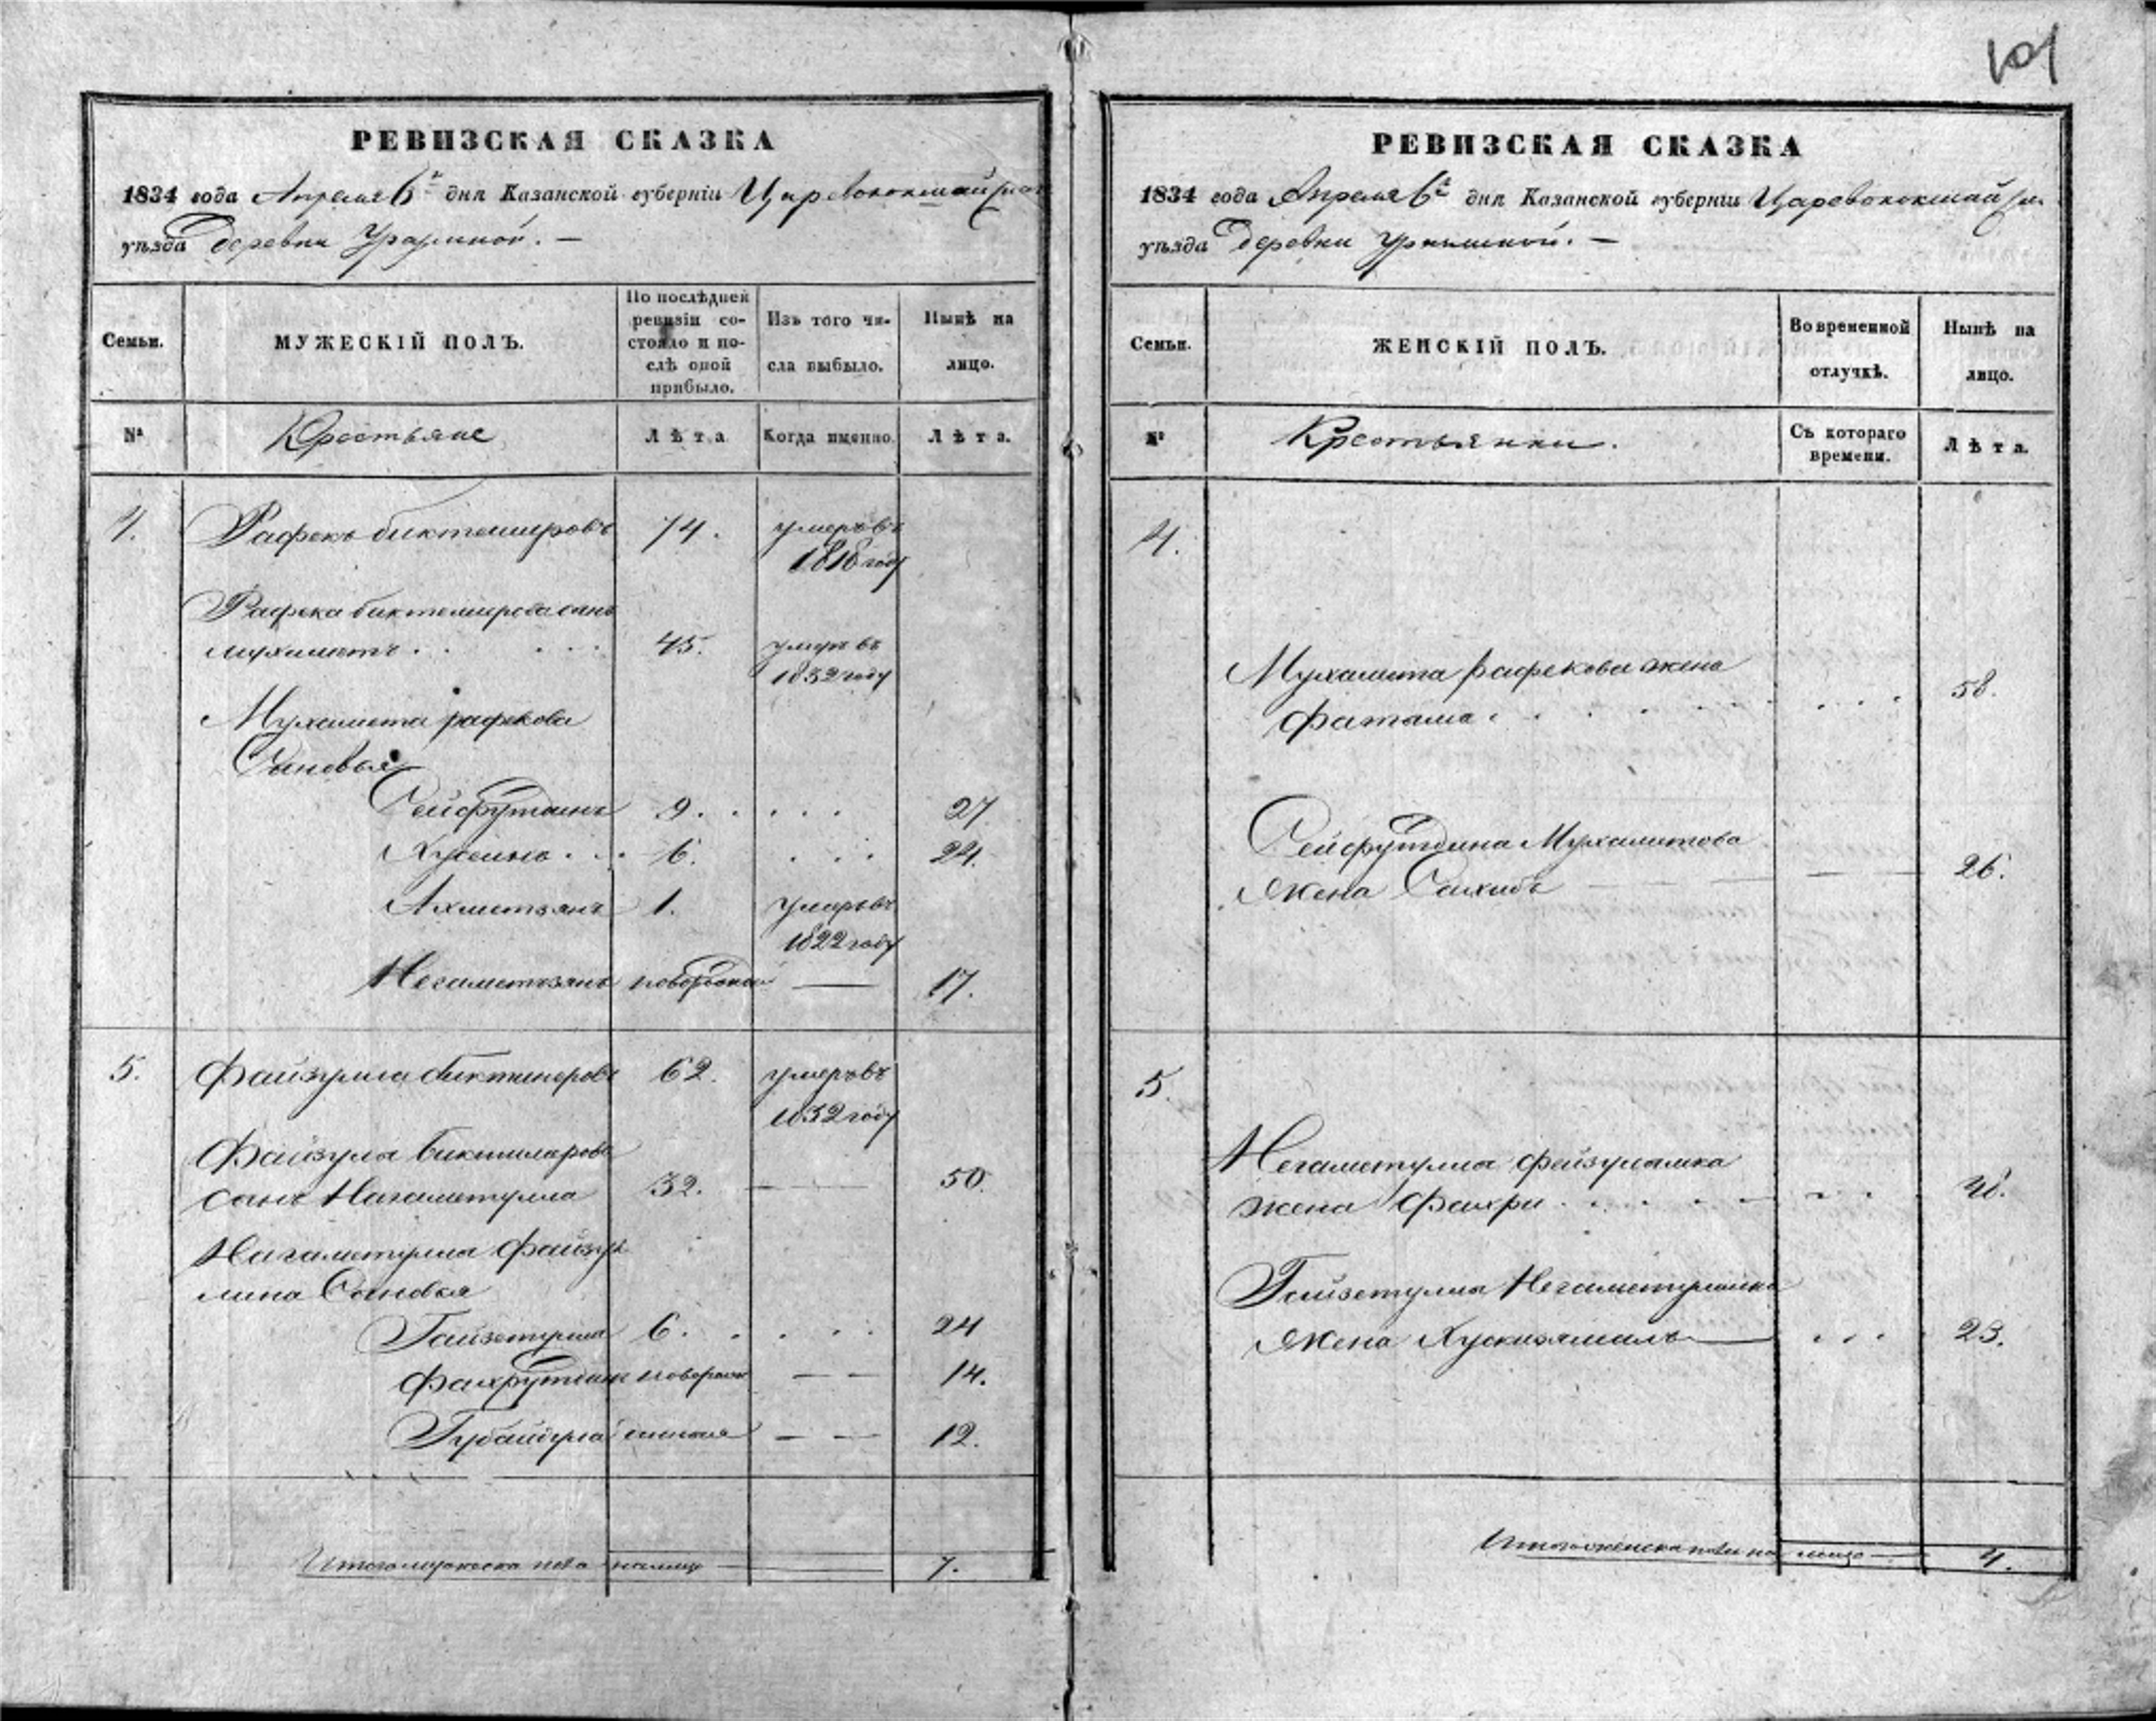 101
РЕВИЗСКАЯ СКАЗКА
1834 года Апреля 6 дня Казанской губерніи Царевококшайска
уѣзда Деревни
Семьи.
МУЖЕСКІЙ ПОЛЪ.
По послѣдней
ревизіи со-
стояло и по-
слѣ оной
прибыло.
Изъ того чи-
сла выбыло.
Нынѣ на
лицо.
№
Крестьяне
Лѣта
Когда именно.
Лѣта.
4. Рафекъ биктемировъ 74. умеръ въ
1818 году
Рафека биктемирова сынъ
мухаметъ . . . . . 45. умеръ въ
1832 году
Мухамета рафекова
Сыновья
Сейфутдинъ 9. . . . . 27
Хусеинъ . . . 6. . . . 24.
Ахметзянъ 1. умеръ въ
1822 году
Негаметзянъ новорожден — 17.
5. Файзулла биктимеровъ 62. умеръ въ
1832 году
Файзула биктимерова
сынъ Нагаметулла 32. — — 50.
Нагаметулла Файзул
лина Сыновья
Гайзетулла 6. . . . . 24
Фахрутдин новорож — — 14.
Губайдулла — — 12.
Итого мужеска пола налицо — 7.
РЕВИЗСКАЯ СКАЗКА
1834 года Апреля 6 дня Казанской губерніи Царевококшайска
уѣзда Деревни
Семьи.
ЖЕНСКІЙ ПОЛЪ.
Во временной
отлучкѣ.
Нынѣ на
лицо.
№
Крестьянки.
Съ котораго
времени.
Лѣта.
4.
Мухамета рафекова жена
Фатама . . . . . . . . . 58.
Сейфутдина Мухаметова
Жена Сахибъ — — — 26.
5.
Негаметулла Фейзулинка
жена Фахри . . . . . . . 48.
Гайзетулла Негаметуллина
Жена — . . . 23.
Итого женска пола на лицо — 4.